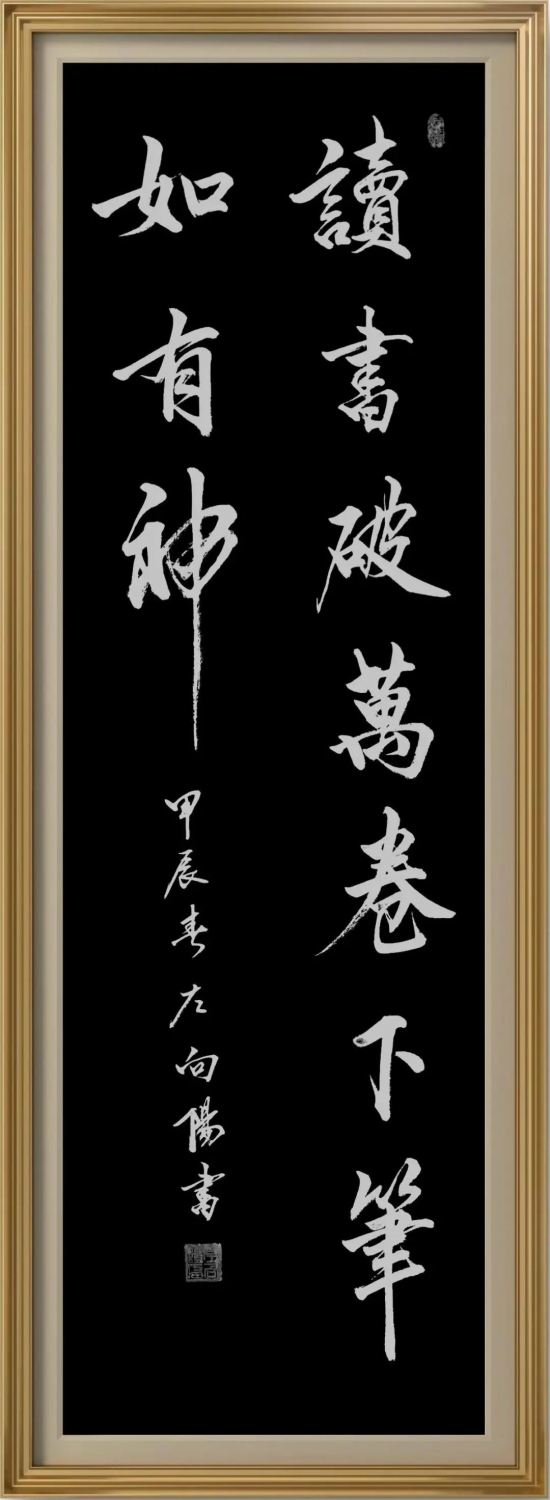 讀書破萬卷下筆
如有神
甲辰春左向陽書